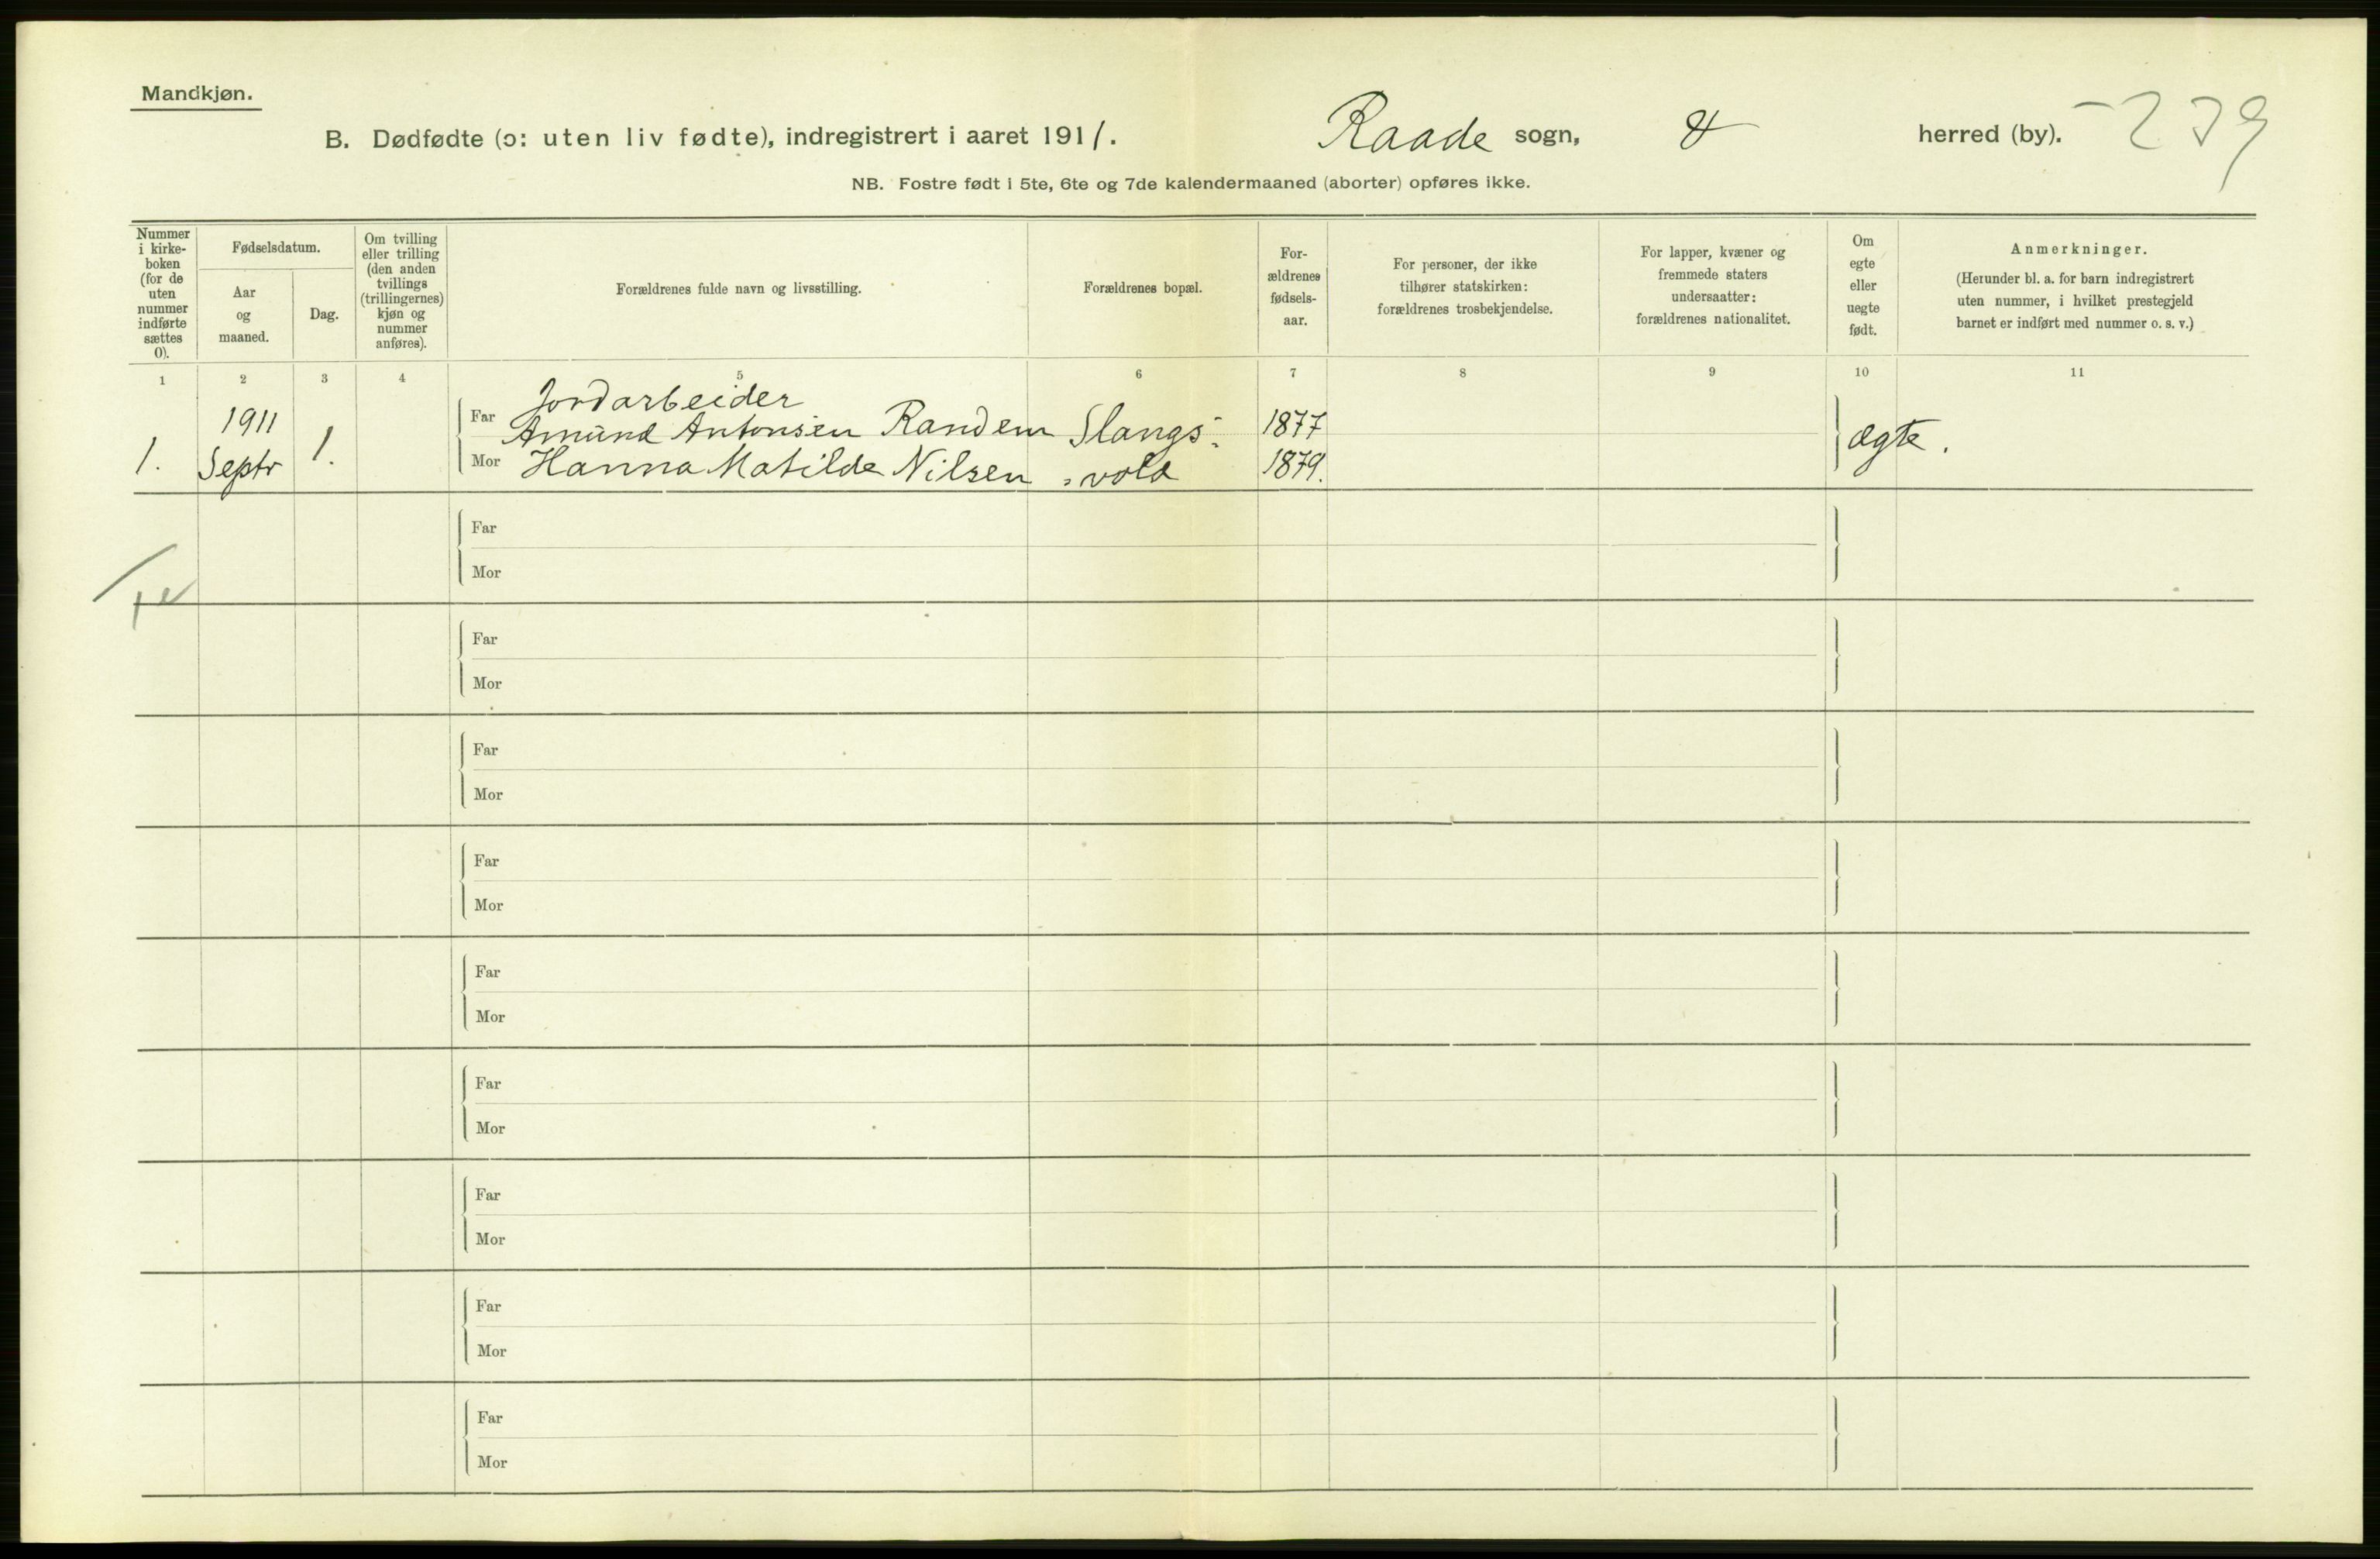 Mandkjøn.
B. Dødfødte (ɔ: uten liv fødte), indregistrert i aaret 1911. Raade sogn, & herred (by). -239
NB. Fostre født i 5te, 6te og 7de kalendermaaned (aborter) opføres ikke.
Nummer i kirke-boken (for de uten nummer indførte sættes 0).
Fødselsdatum.
Aar og maaned.
Dag.
Om tvilling eller trilling (den anden tvillings (trillingernes) kjøn og nummer anføres).
Forældrenes fulde navn og livsstilling.
Forældrenes bopæl.
For-ældrenes fødsels-aar.
For personer, der ikke tilhører statskirken: forældrenes trosbekjendelse.
For lapper, kvæner og fremmede staters undersaatter: forældrenes nationalitet.
Om egte eller uegte født.
Anmerkninger.
(Herunder bl. a. for barn indregistrert uten nummer, i hvilket prestegjeld barnet er indført med nummer o. s. v.)
1 2 3 4 5 6 7 8 9 10 11
Jordarbeider
1911 Far Amund Antonsen Randem Slangs- 1877
1. Septr 1. Mor Hanna Matilde Nilsen -vold 1879. ægte.
Far
Mor
Far
Mor
Far
Mor
Far
Mor
Far
Mor
Far
Mor
Far
Mor
Far
Mor
Far
Mor